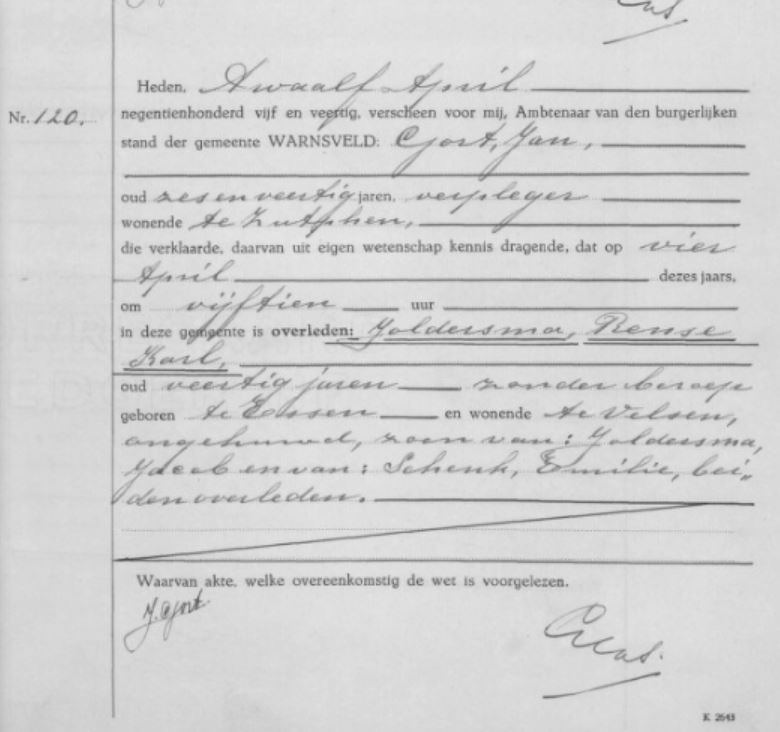 Nr. 120.
Heden, Twaalf April
negentienhonderd vijf en veertig, verscheen voor mij, Ambtenaar van den burgerlijken
stand der gemeente WARNSVELD: Gort, Jan,
oud zesenveertig jaren, verpleger
wonende te Zutphen,
die verklaarde, daarvan uit eigen wetenschap kennis dragende, dat op vier
April dezes jaars,
om vijftien uur
in deze gemeente is overleden: Joldersma, Rense
Karl,
oud veertig jaren zonder beroep
geboren te Essen en wonende te Velsen,
ongehuwd, zoon van: Joldersma,
Jacob en van: Schenk, Emilie, bei„
den overleden.
Waarvan akte, welke overeenkomstig de wet is voorgelezen.
J. Gort
K 2643